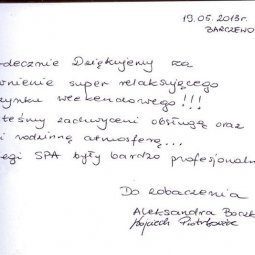 19.05.2013r.
BARCZEWO
decznie Dziękujemy za
wnienie super relaksującego
zynku weekendowego!!!
teśmy zachwyceni obsługą oraz
i rodzinną atmosferą...
egi SPA były bardzo profesjonaln
Do zobaczenia
Aleksandra
Wojciech